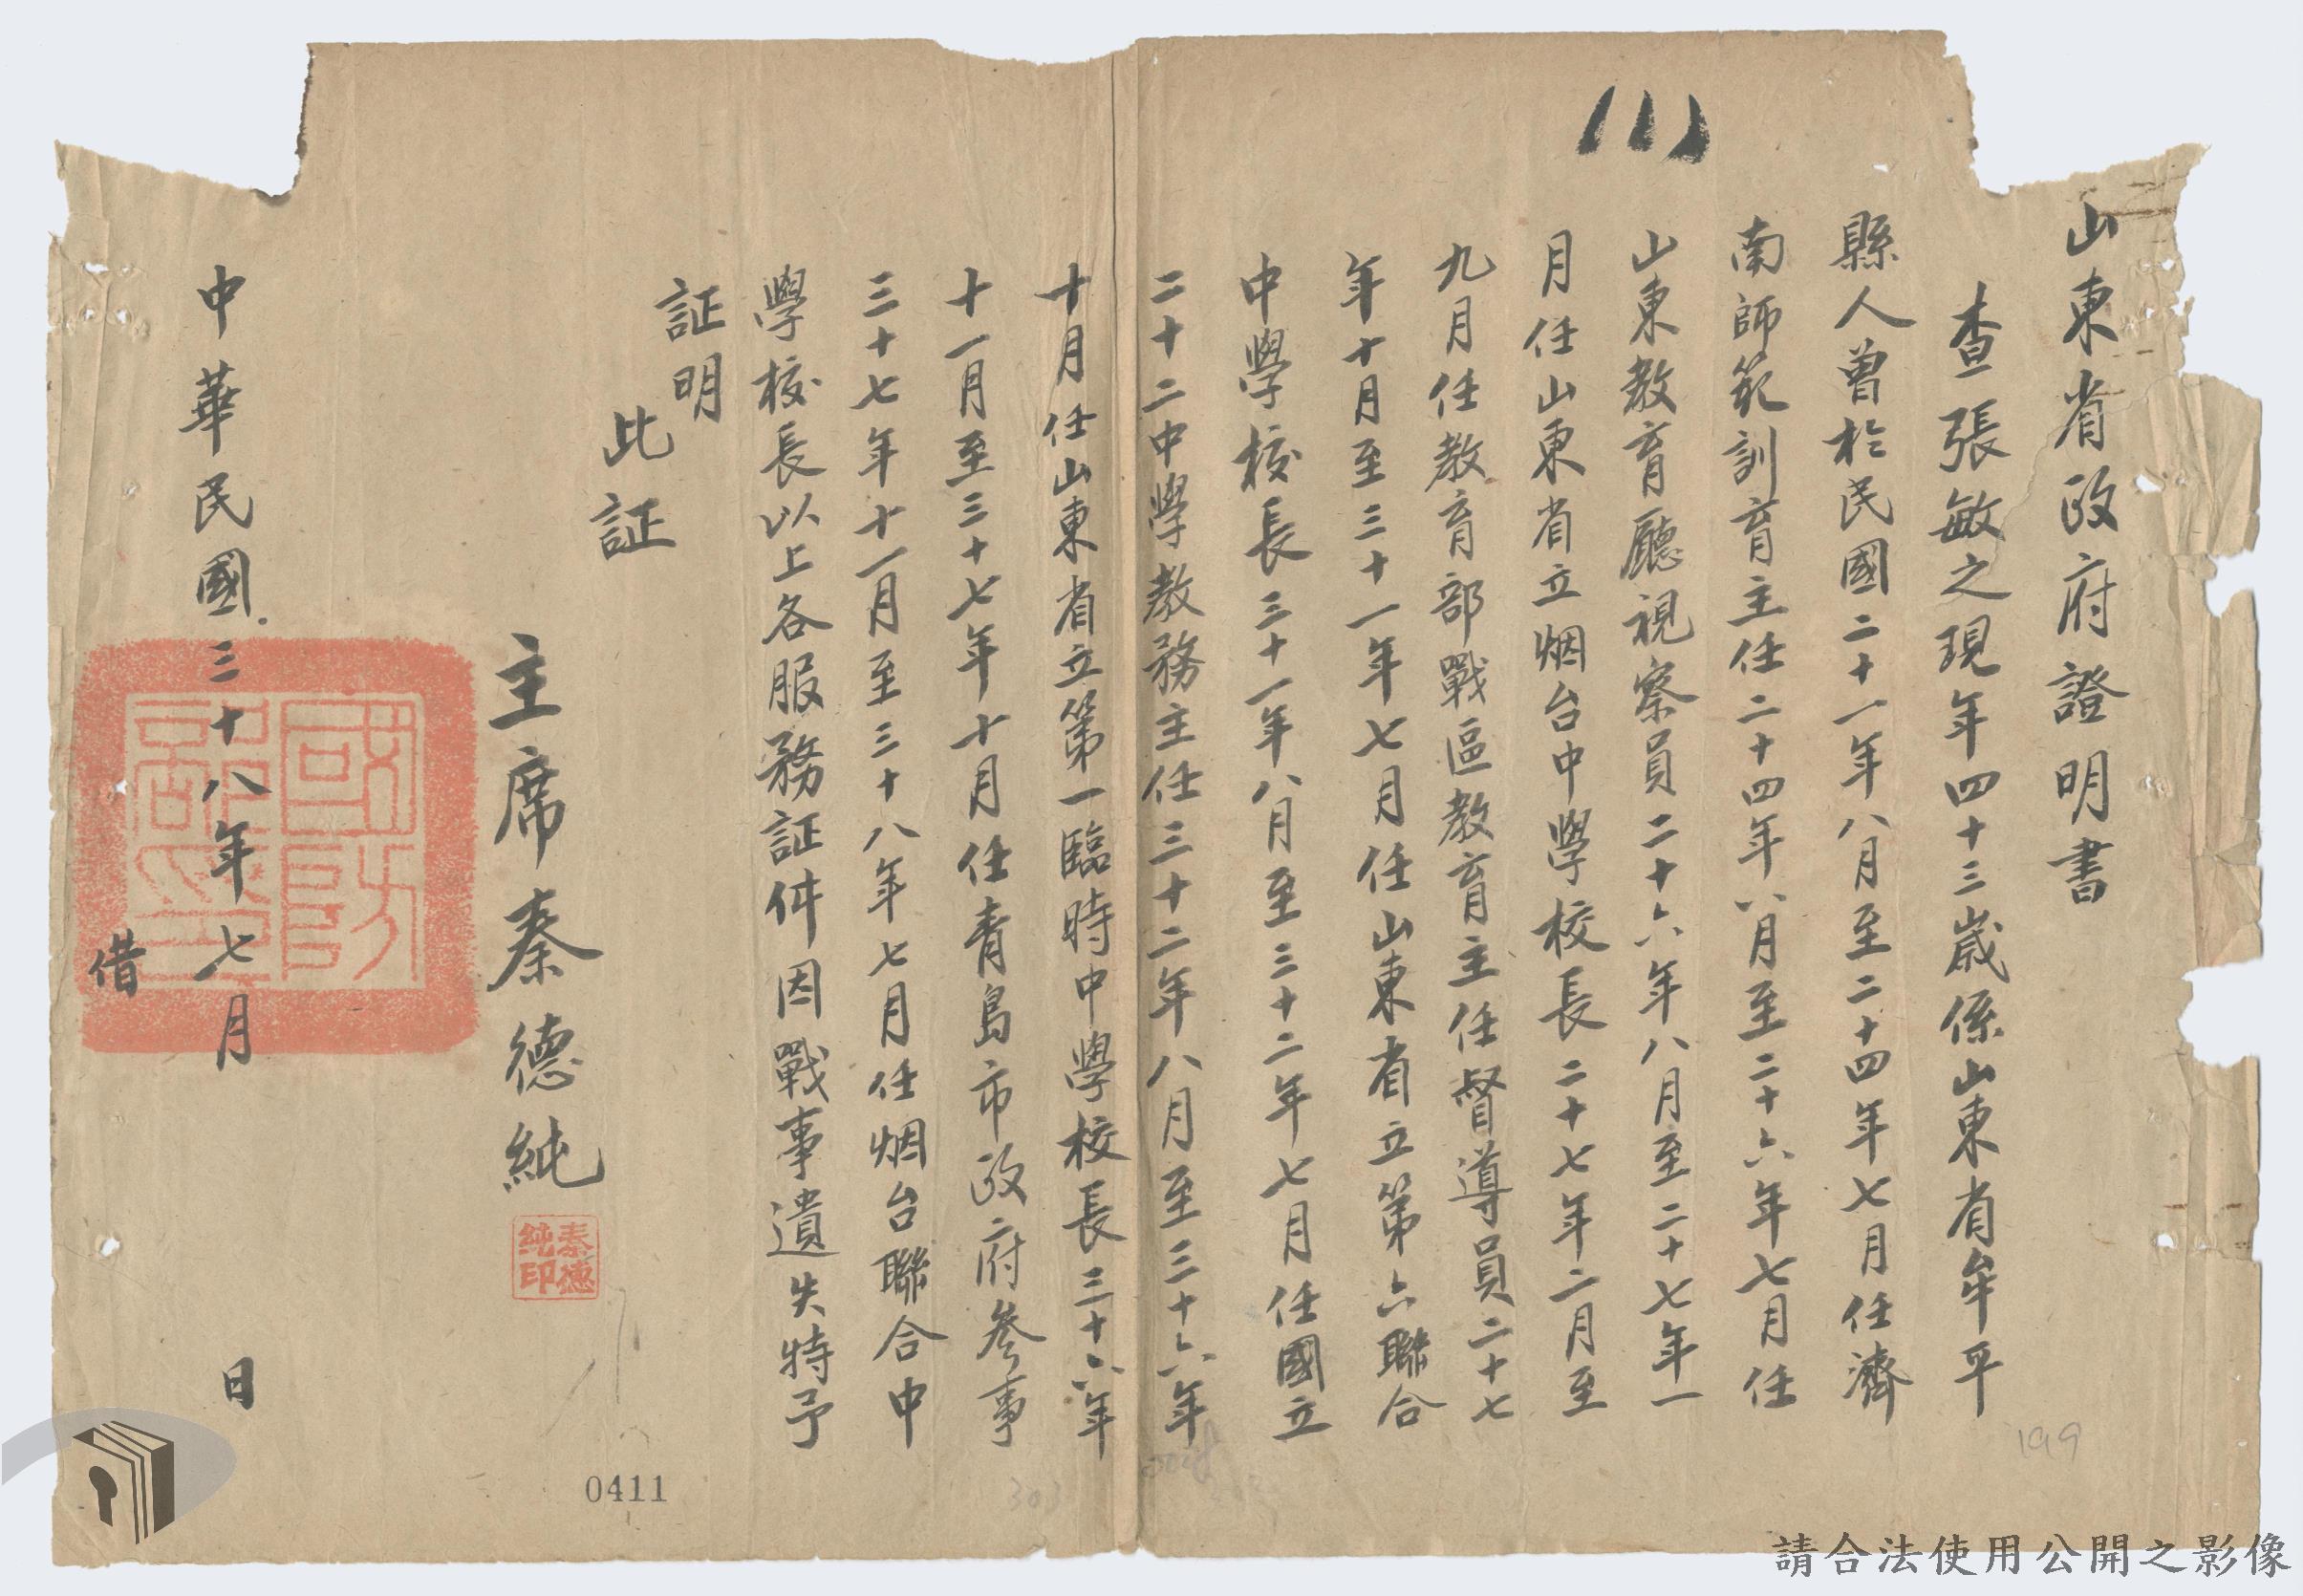 山東省政府證明書
查張敏之現年四十三歲係山東省牟平
縣人曾於民國二十一年八月至二十四年七月任濟
南師範訓育主任二十四年八月至二十六年七月任
山東教育廳視察員二十六年八月至二十七年一
月任山東省立烟台中學校長二十七年二月至
九月任教育部戰區教育主任督導員二十七
年十月至三十一年七月任山東省立第六聯合
中學校長三十一年八月至三十二年七月任國立
二十二中學教務主任三十二年八月至三十六年
十月任山東省立第一臨時中學校長三十六年
十一月至三十七年十月任青島市政府參事
三十七年十一月至三十八年七月任烟台聯合中
學校長以上各服務証件因戰事遺失特予
証明
此証
主席秦德純
秦德純印
中華民國三十八年七月 日
國防部印
借
0411
199
303
請合法使用公開之影像